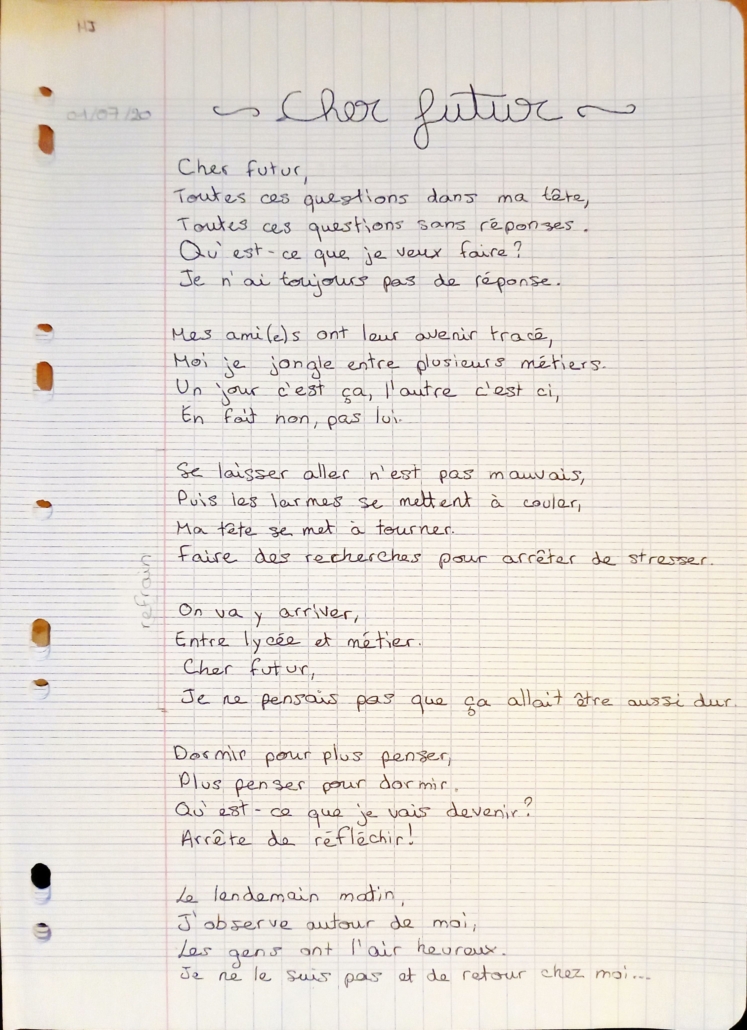 NJ
01/07/20
Cher futur
Cher futur,
Toutes ces questions dans ma tête,
Toutes ces questions sans réponses.
Qu'est-ce que je veux faire?
Je n'ai toujours pas de réponse.
Mes ami(e)s ont leur avenir tracé,
Moi je jongle entre plusieurs métiers.
Un jour c'est ça, l'autre c'est ci,
En fait non, pas lui.
Se laisser aller n'est pas mauvais,
Puis les larmes se mettent à couler,
Ma tête se met à tourner.
Faire des recherches pour arrêter de stresser.
refrain
On va y arriver,
Entre lycée et métier.
Cher futur,
Je ne pensais pas que ça allait être aussi dur.
Dormir pour plus penser,
Plus penser pour dormir.
Qu'est-ce que je vais devenir?
Arrête de réfléchir!
Le lendemain matin,
J'observe autour de moi,
Les gens ont l'air heureux.
Je ne le suis pas et de retour chez moi...